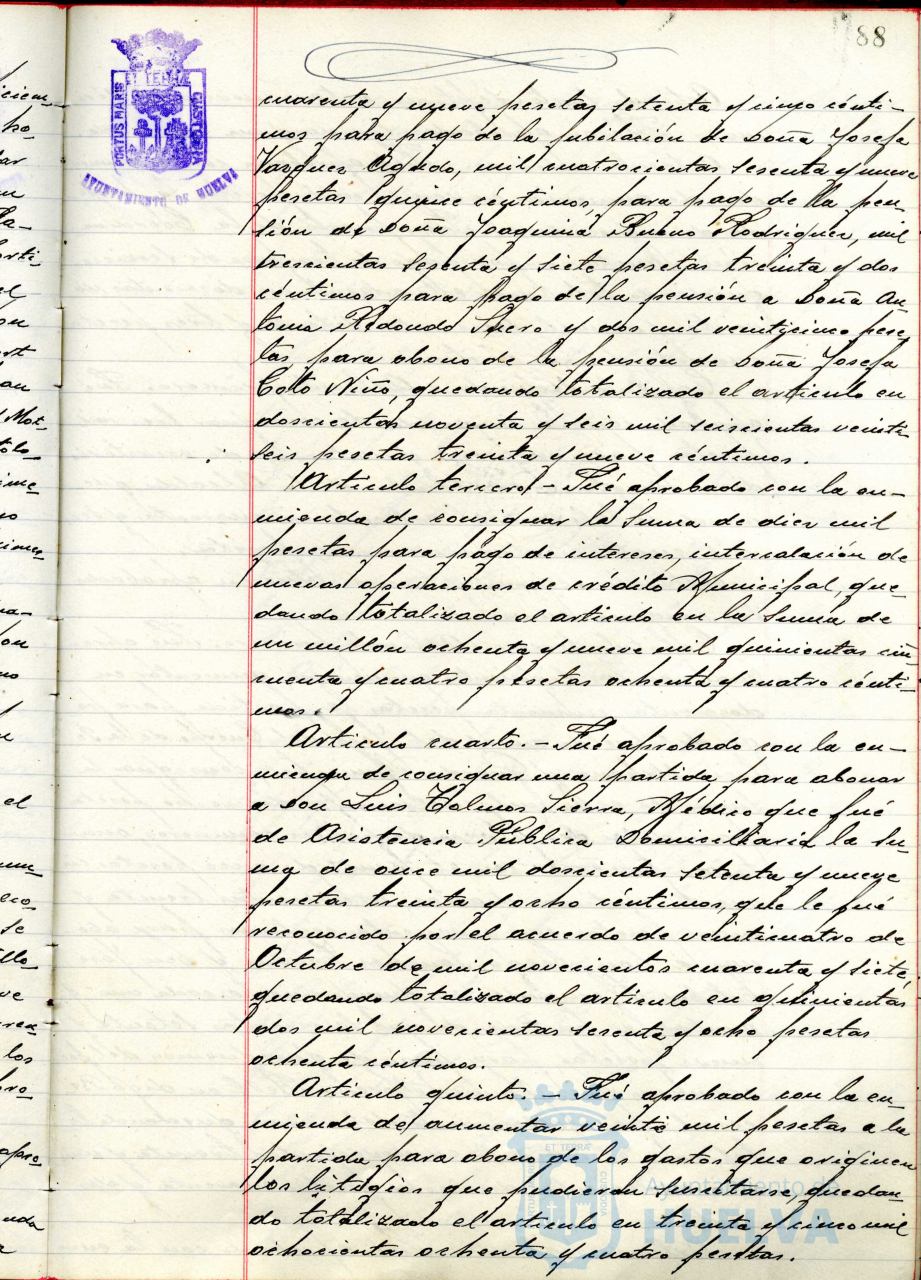 88
ET TERRÆ
PORTUS MARIS
CUSTODIA
AYUNTAMIENTO DE HUELVA
cuarenta y nueve pesetas setenta y cinco cénti-
mos para pago de la jubilación de Doña Josefa
Vazquez Agudo, mil cuatrocientas sesenta y nueve
pesetas quince céntimos, para pago de la pen-
sión de Doña Joaquina Bueno Rodriguez, mil
trescientas sesenta y siete pesetas treinta y dos
céntimos para pago de la pensión a Doña An-
tonia Redondo Suero y dos mil veinticinco pese-
tas para abono de la pensión de Doña Josefa
Coto Niño, quedando totalizado el articulo en
doscientas noventa y seis mil seiscientas veinti-
seis pesetas treinta y nueve céntimos.
Articulo tercero - Fué aprobado con la en-
mienda de consignar la suma de diez mil
pesetas para pago de intereses, intercalación de
nuevas operaciones de crédito Municipal, que-
dando totalizado el articulo en la suma de
un millón ochenta y nueve mil quinientas cin-
cuenta y cuatro pesetas ochenta y cuatro cénti-
mos.
Articulo cuarto. - Fué aprobado con la en-
mienda de consignar una partida para abonar
a Don Luis Sierra, Médico que fué
de Asistencia Pública Domiciliaria la su-
ma de once mil doscientas setenta y nueve
pesetas treinta y ocho céntimos, que le fué
reconocido por el acuerdo de veinticuatro de
Octubre de mil novecientos cuarenta y siete,
quedando totalizado el articulo en quinientas
dos mil novecientas sesenta y ocho pesetas
ochenta céntimos.
Articulo quinto. - Fué aprobado con la en-
mienda de aumentar veinte mil pesetas a la
partida para abono de los gastos que originen
los litigios que pudieran suscitarse, quedan-
do totalizado el articulo en treinta y cinco mil
ochocientas ochenta y cuatro pesetas.
Ayuntamiento de
HUELVA